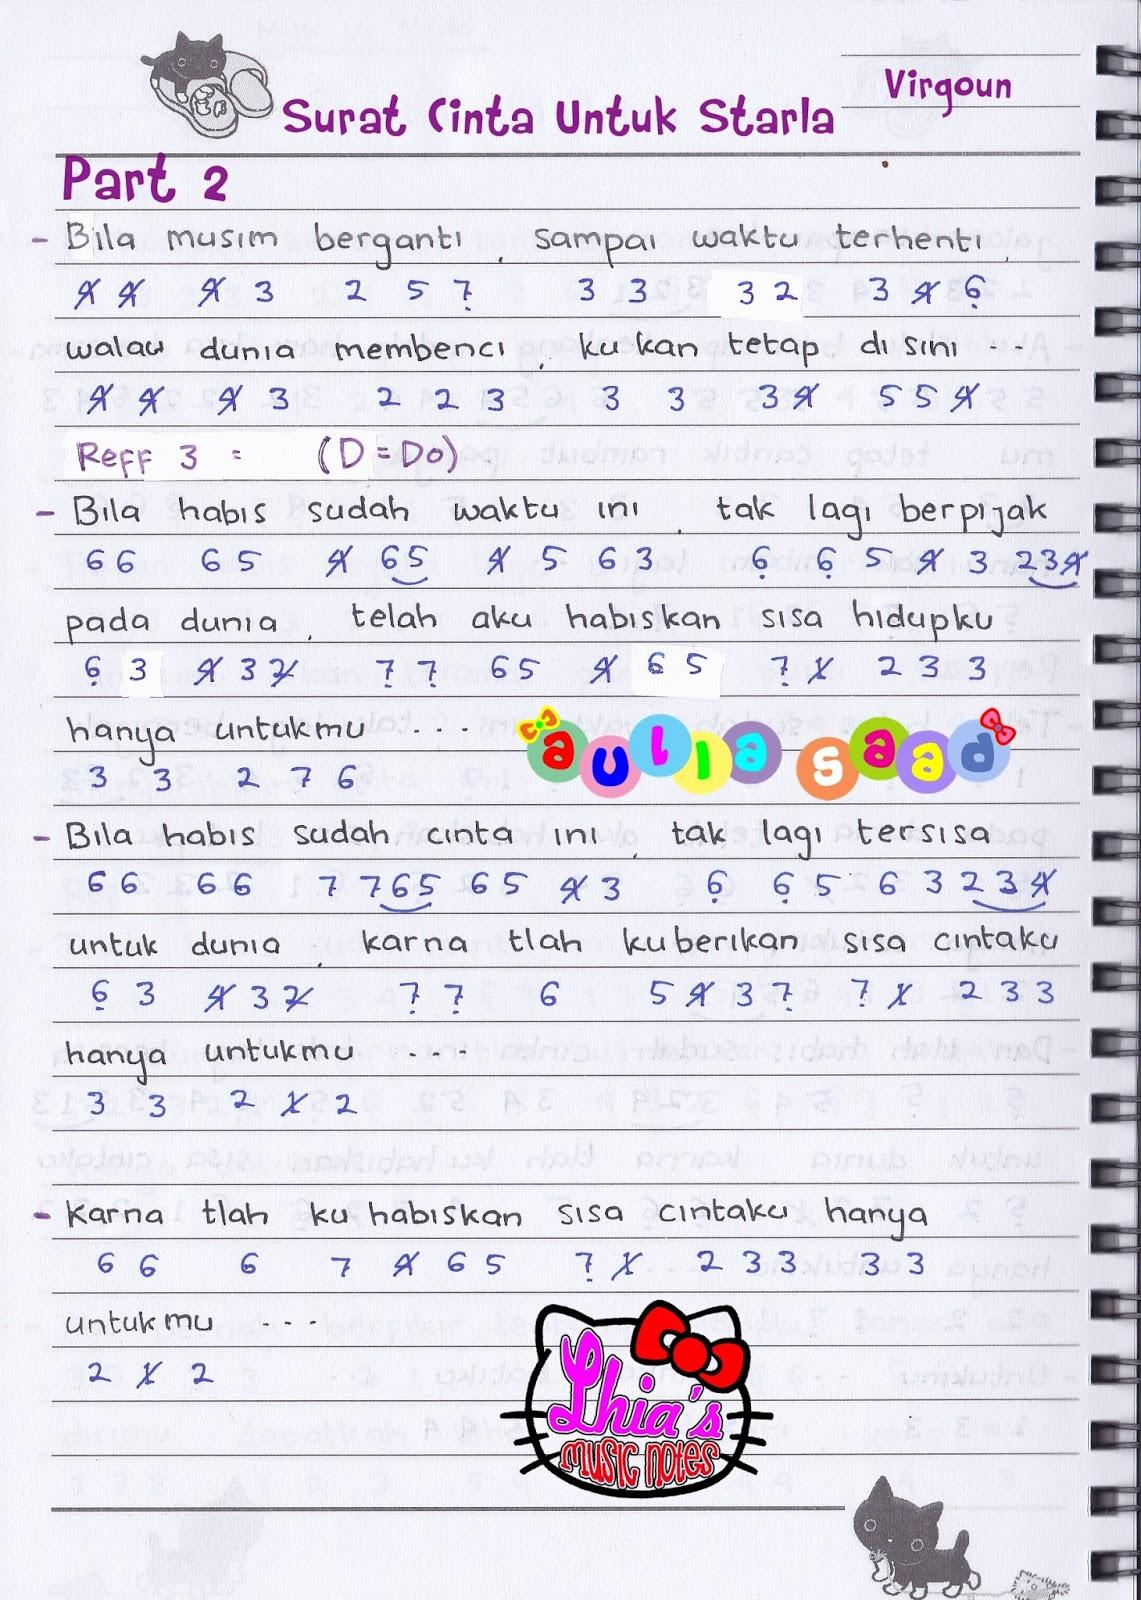 Virgoun
Surat Cinta Untuk Starla
Part 2
- Bila musim berganti, sampai waktu terhenti,
4̸ 4̸ 4̸ 3 2 5 7̣ 3 3 3 2 3 4̸ 6̣
walau dunia membenci, ku kan tetap disini ...
4̸ 4̸ 4̸ 3 2 2 3 3 3 3 4̸ 5 5 4̸
Reff 3 = (D=Do)
- Bila habis sudah waktu ini, tak lagi berpijak
6 6 6 5 4̸ 6 5 4̸ 5 6 3 6̣ 6̣ 5 4̸ 3 2 3 4̸
pada dunia, telah aku habiskan sisa hidupku
6̣ 3 4̸ 3 2̸ 7̣ 7̣ 6 5 4̸ 6 5 7̣ 1̸ 2 3 3
hanya untukmu ....
3 3 2 7 6
aulia saad
- Bila habis sudah cinta ini, tak lagi tersisa
6 6 6 6 7 7 6 5 6 5 4̸ 3 6̣ 6̣ 5 6 3 2 3 4̸
untuk dunia, karna tlah kuberikan sisa cintaku
6̣ 3 4̸ 3 2̸ 7̣ 7̣ 6 5 4̸ 3 7̣ 7̣ 1̸ 2 3 3
hanya untukmu ....
3 3 2 1̸ 2
- Karna tlah ku habiskan sisa cintaku hanya
6 6 6 7 4̸ 6 5 7̣ 1̸ 2 3 3 3 3
untukmu ...
2 1̸ 2
Lhia's
music notes